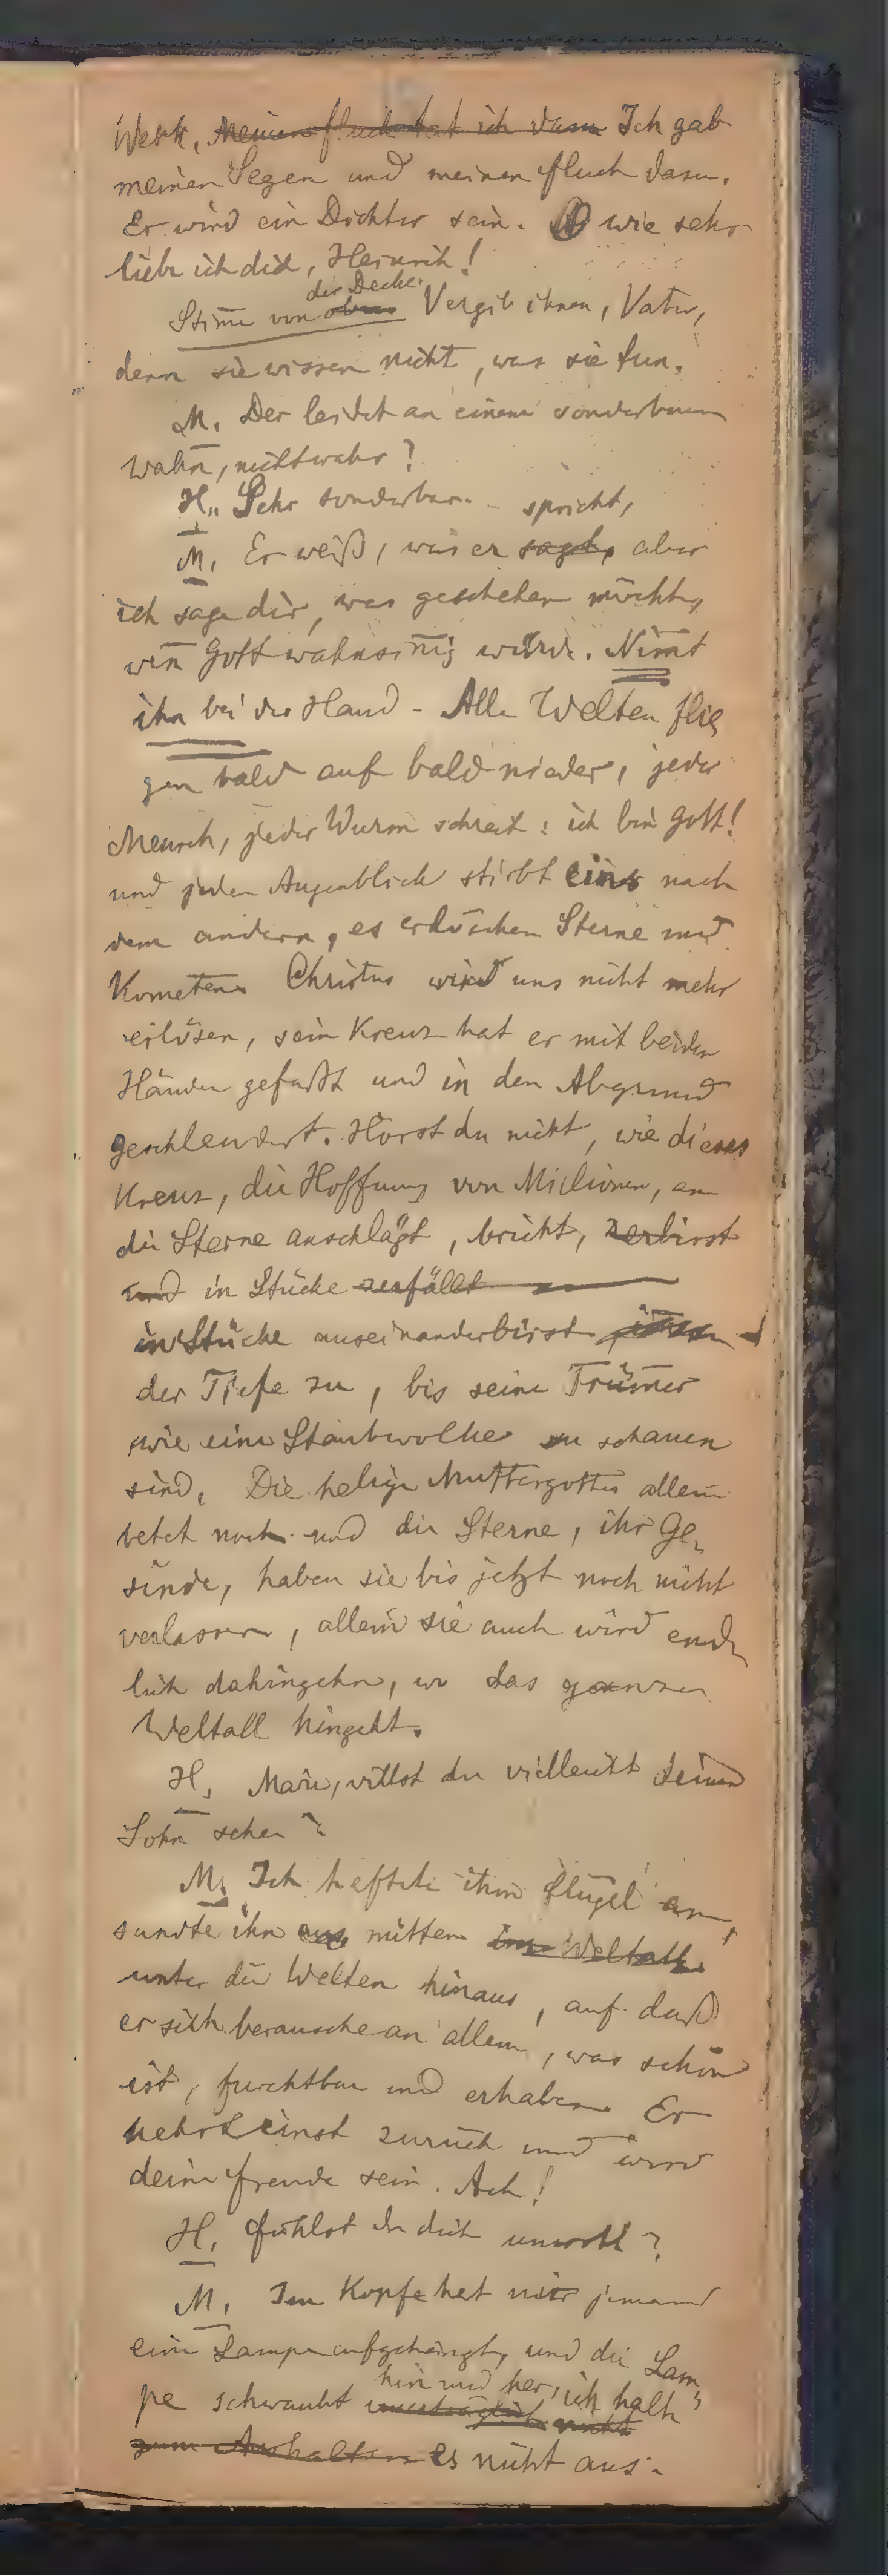 Werk, Meinen fluch tat ich dazu Ich gab
meinen Segen und meinen fluch dazu.
Er wird ein Dichter sein. O wie sehr
liebe ich dich, Heinrich!
der Decke.
Stim̄e von oben Vergib ihnen, Vater,
denn sie wissen nicht, was sie tun.
M. Der leidet an einem sonderbaren
Wahn, nichtwahr?
H. Sehr sonderbar.
spricht,
M. Er weiß, was er sagt, aber
ich sage dir, was geschehen möchte,
wen̄ Gott wahnsin̄ig würde. Nim̄t
ihn bei der Hand - Alle Welten flie
gen bald auf bald nieder, jeder
Mensch, jeder Wurm schreit: ich bin Gott!
und jeden Augenblick stirbt eins nach
dem andern, es erlöschen Sterne und
Kometen. Christus wird uns nicht mehr
erlösen, sein Kreuz hat er mit beiden
Händen gefaßt und in den Abgrund
geschleudert. Hörst du nicht, wie dieses
Kreuz, die Hoffnung von Milionen, an
die Sterne anschlägt, bricht, zerbirst
und in Stücke zerfällt
in Stücke auseinanderbirst
der Tiefe zu, bis seine Trüm̄er
wie eine Staubwolke zu schauen
sind. Die heilige Muttergottes allein
betet noch und die Sterne, ihr Ge„
sinde, haben sie bis jetzt noch nicht
verlassen, allein sie auch wird end„
lich dahingehn, wo das ganze
Weltall hingeht.
H. Marie, willst du vielleicht deinen
Sohn sehen?
M. Ich heftete ihm flügel an,
sandte ihn aus mitten im Weltall
unter die Welten hinaus, auf daß
er sich berausche an allem, was schön
ist, furchtbar und erhaben. Er
kehrt einst zurück und wird
deine freude sein. Ach!
H. fühlst du dich unwohl?
M. Im Kopfe hat mir jemand
eine Lampe aufgehängt, und die Lam„
hin und her, ich halte
pe schwankt unerträglich nicht
zum Aushalten es nicht aus.